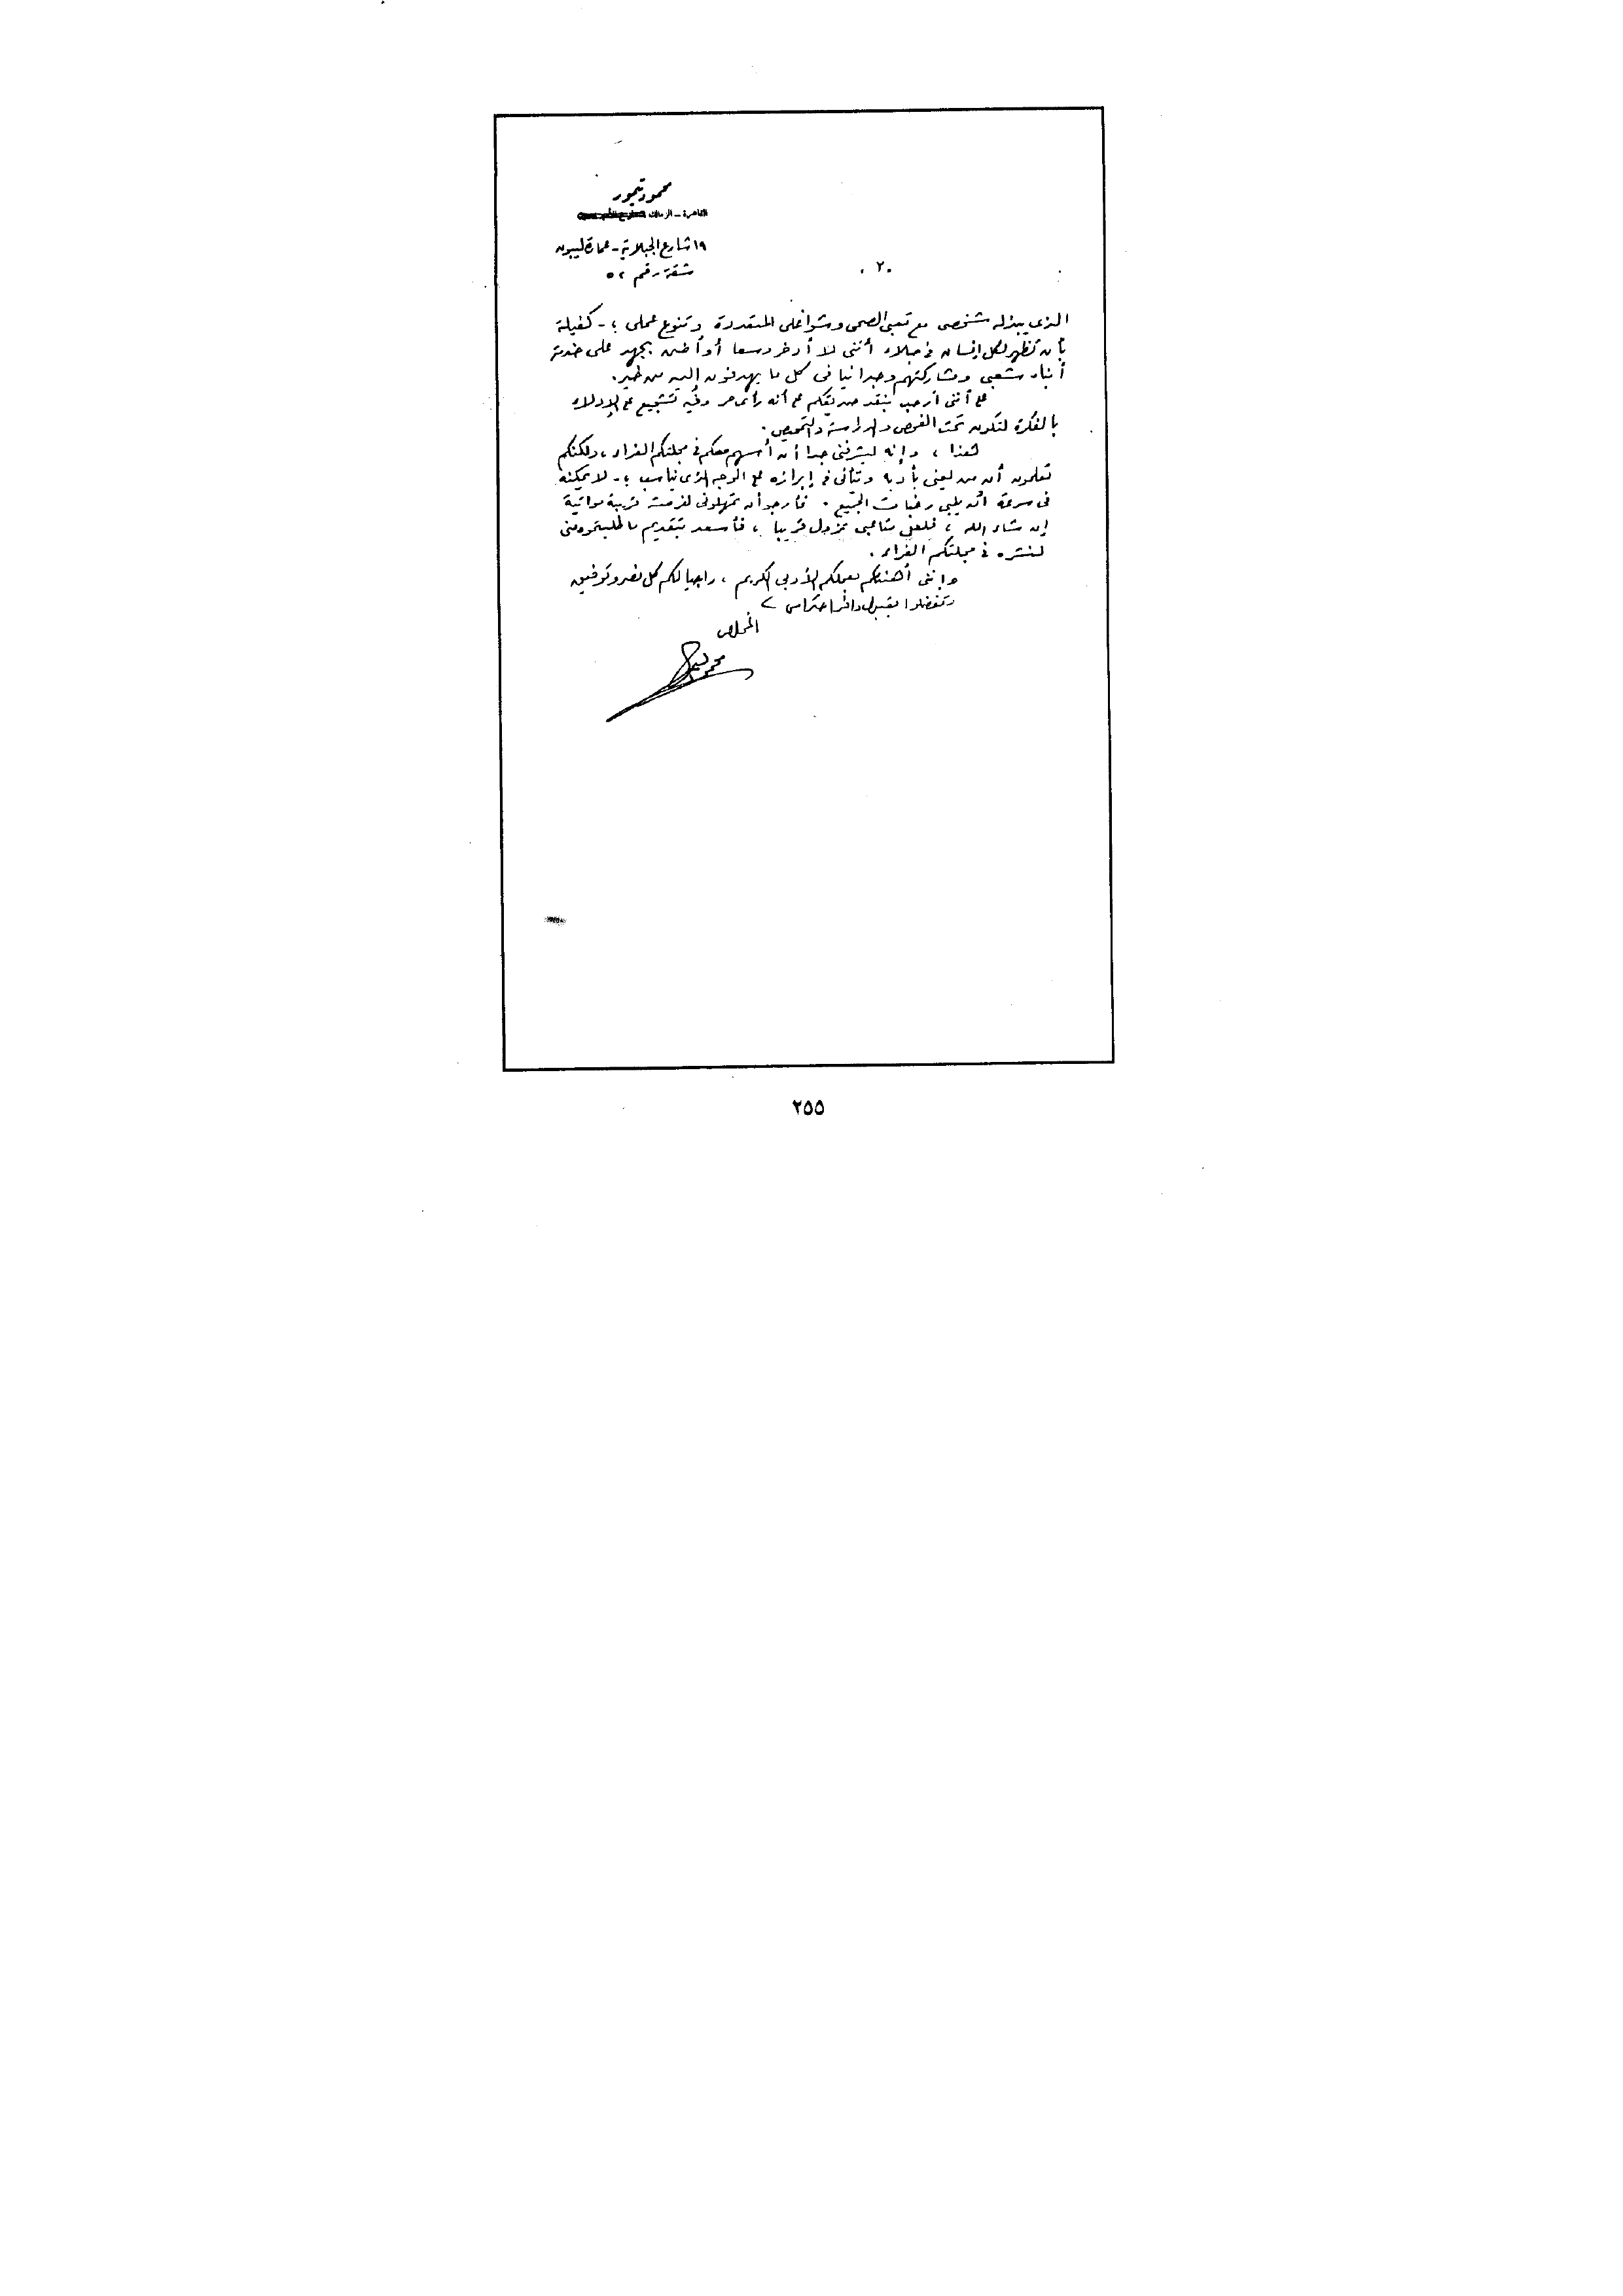 محمود تيمور
القاهرة - الزمالك
١٩ شارع الجبلاية - عمارة ليبون
شقة رقم ٥٢
٢٠
الذى يبذله شخصى مع تعبى الصحى وشواغلى المتعددة وتنوع عملى ؛ - كفيلة
بأن تظهر لكل إنسان فى جلاء أننى لا أدخر وسعا أو أضن بجهد على خدمة
أبناء شعبى ومشاركتهم وجدانيا فى كل ما يهدفون إليه من خير .
على أننى أرحب بنقد صديقكم على أنه رأى حر وفيه تشجيع على الإدلاء
بالفكرة لتكون تحت الفحص والدراسة والتمحيص .
هذا ، وإنه ليشرفنى جدا أن أسهم معكم فى مجلتكم الغراء ، ولكنكم
تعلمون أن من يعنى بأدبه ويتأنى فى إبرازه على الوجه الذى يناسب ؛ - لا يمكنه
فى سرعة أن يلبى رغبات الجميع . فأرجو أن تمهلونى لفرصة قريبة مواتية
إن شاء الله ، فلعل متاعبى تزول قريبا ، فأسعد بتقديم ما طلبتموه منى
لنشره فى مجلتكم الغراء .
وإننى أهنئكم بعملكم الأدبى الكريم ، راجيا لكم كل نصر وتوفيق
وتفضلوا بقبول وافر احترامى
المخلص
محمود تيمور
٢٥٥